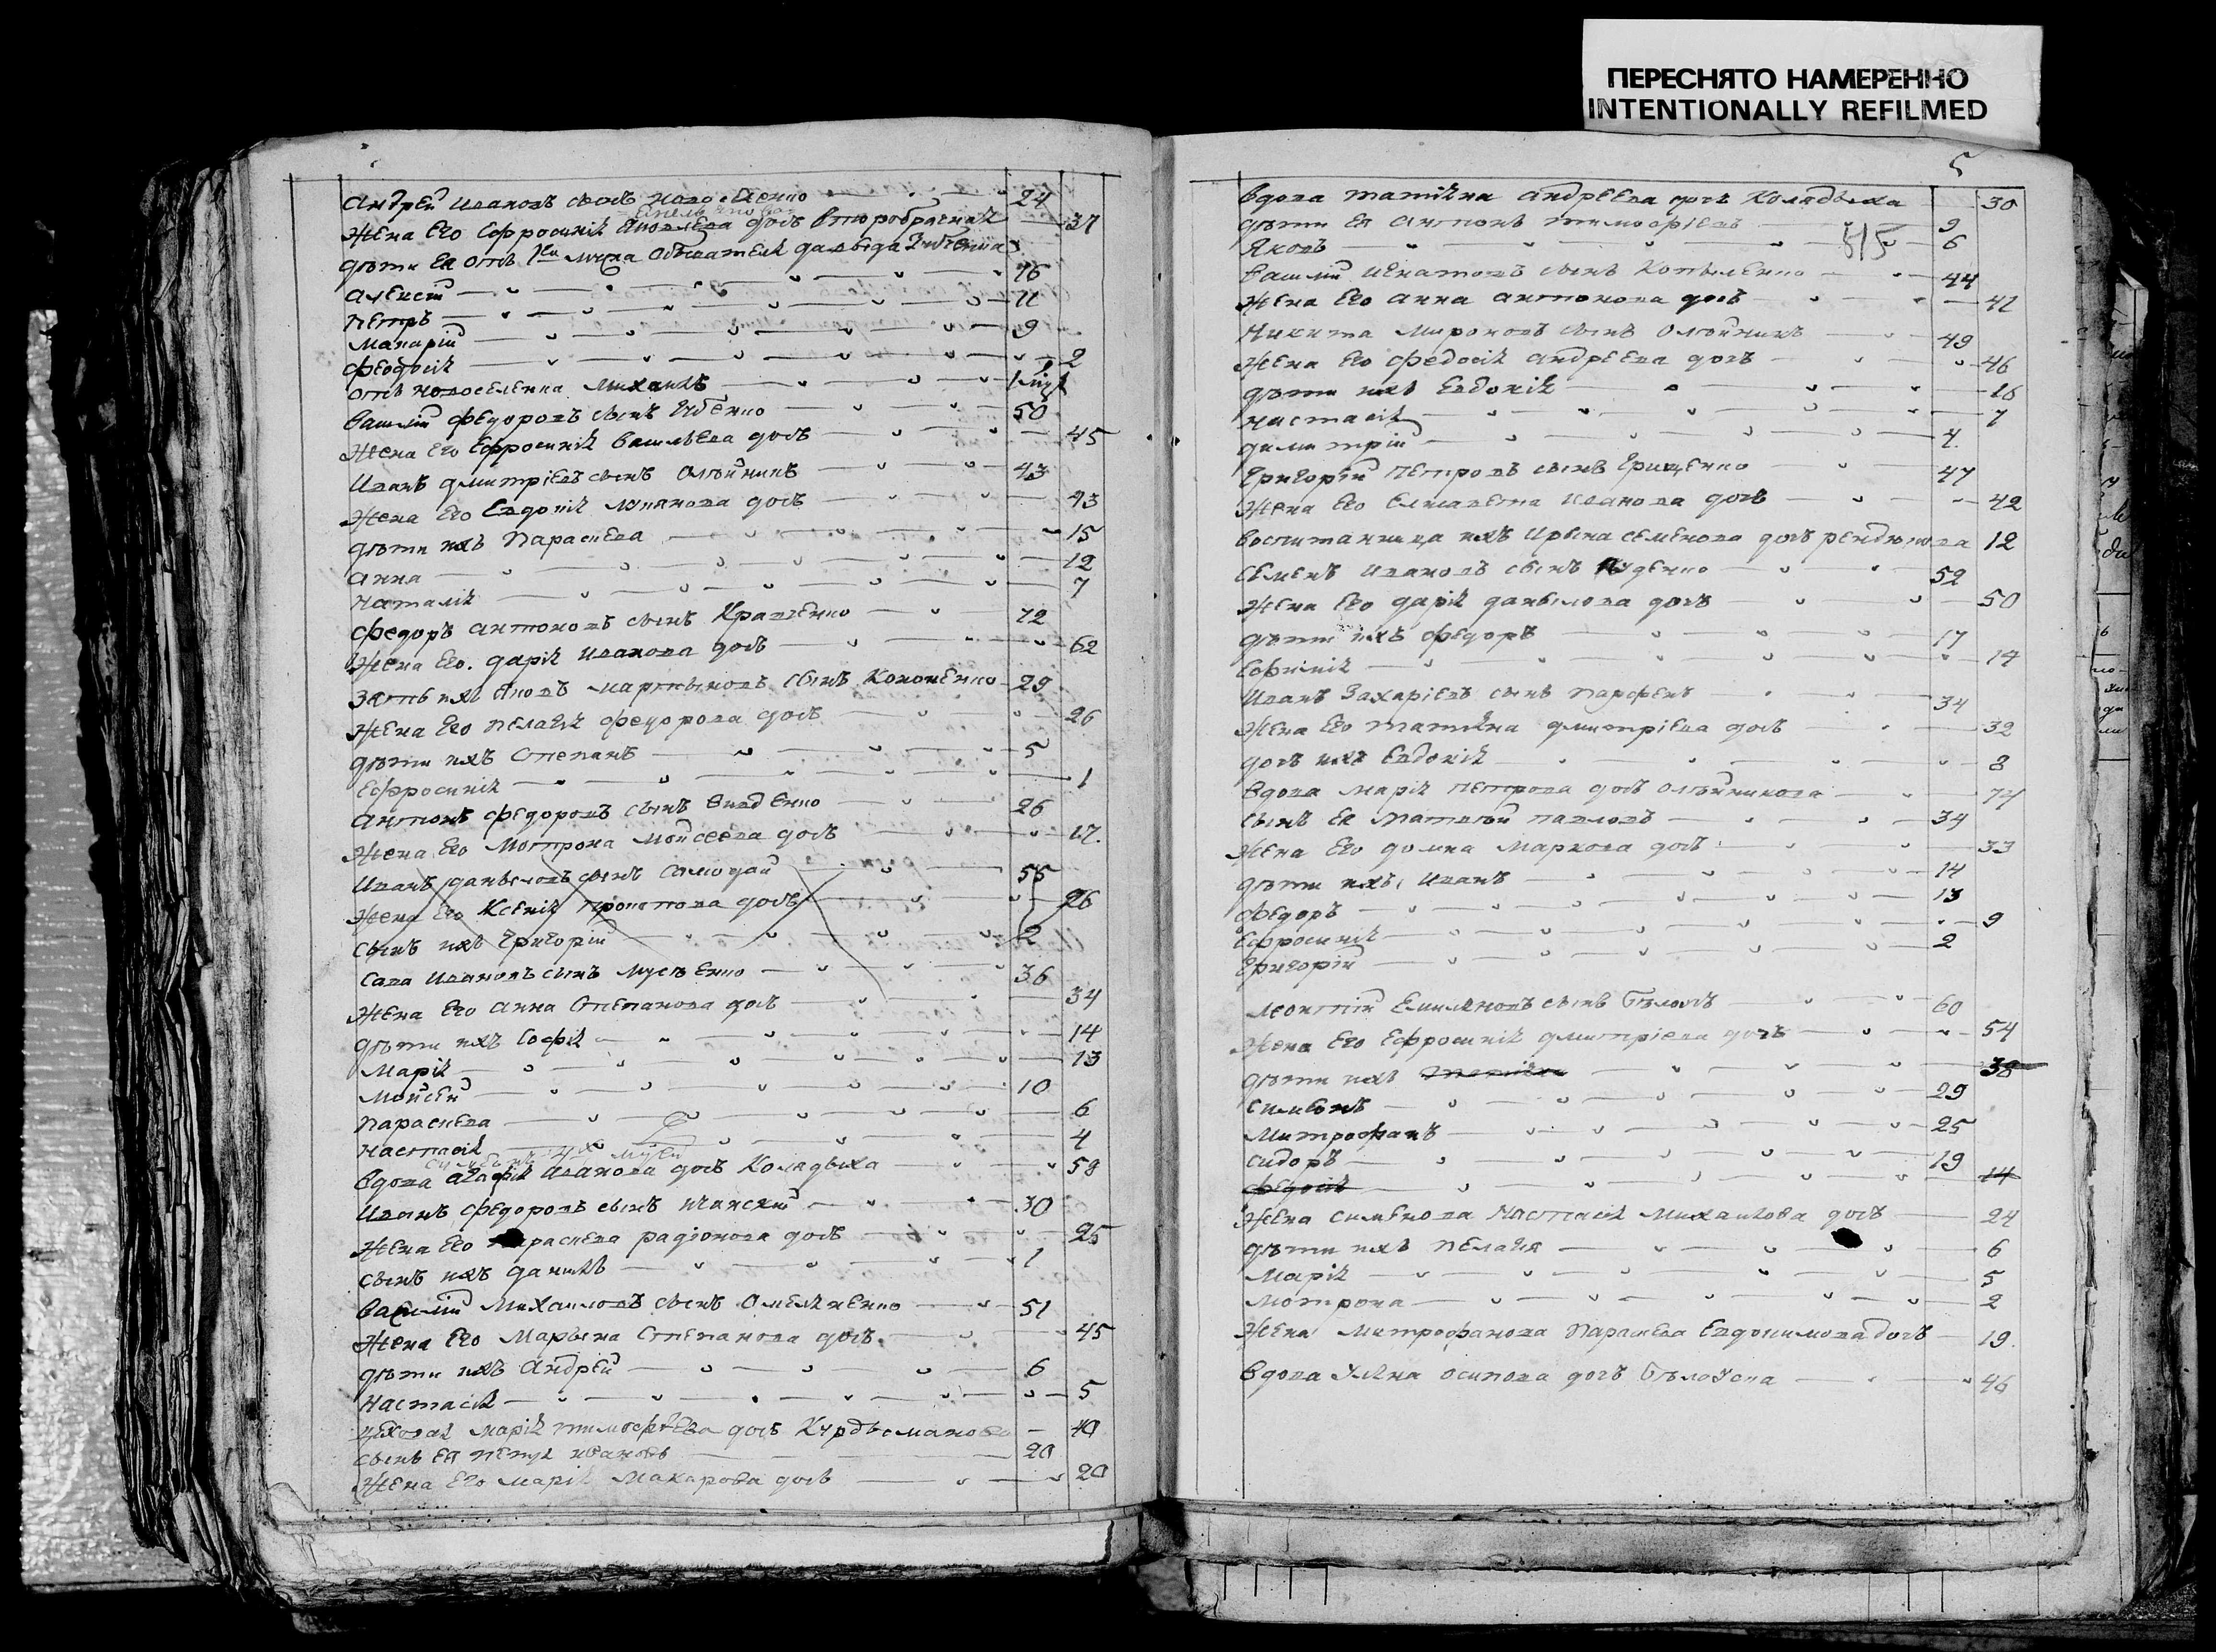 ПЕРЕСНЯТО НАМЕРЕННО
INTENTIONALLY REFILMED
Андрей Ивановъ сынъ 24
Жена его Ефросинія дочь второбрачная 37
дѣти ея отъ 1го мужа обывателя давыда
Алексѣй 16
Петръ 11
Макарій 9
Феодосія 2
отъ новоселенка Михаилъ
Василій Федоровъ сынъ 50
Жена его Ефросинія Васильева дочь 45
Иванъ Дмитріевъ сынъ Олѣйникъ 43
Жена его Евдокія дочь 43
дѣти ихъ Параскева 15
Анна 12
Наталія 7
Федоръ Антоновъ сынъ Кравченко 72
Жена его Дарія Иванова дочь 62
Зять ихъ Яковъ Мартыновъ сынъ Кононенко 29
Жена его Пелагія Федорова дочь 26
дѣти ихъ Степанъ 5
Ефросинія 1
Антонъ Федоровъ сынъ 26
Жена его Мотрона Мойсеева дочь 17
Иванъ Даниловъ сынъ Самодай 55
Жена его Ксенія Прокопова дочь 26
сынъ ихъ Григорій 2
Сава Ивановъ сынъ Мусѣенко 36
Жена его Анна Степанова дочь 34
дѣти ихъ Софія 14
Марія 13
Мойсей 10
Параскева 6
Настасія 4
Вдова Агафія Иванова дочь Колядыха 58
Иванъ Федоровъ сынъ 30
Жена его Параскева Радіонова дочь 25
сынъ ихъ Даніилъ 1
Василій Михаиловъ сынъ Омеляненко 51
Жена его Марына Степанова дочь 45
дѣти ихъ Андрей 6
Настасія 5
Марія Тимофѣева дочь Курдыманова 40
сынъ ея Ивановъ 20
Жена его Марія Макарова дочь 20
5
Вдова Татіяна Андреева дочь Колядыха 30
дѣти ея Антонъ Тимофіевъ 9
Яковъ 6
515
Василій Игнатовъ сынъ Копыленко 44
Жена его Анна Антонова дочь 42
Никита Мироновъ сынъ Олѣйникъ 49
Жена его Федосія Андреева дочь 46
дѣти ихъ Евдокія 16
Настасія 7
Димитрій 4
Григорій Петровъ сынъ Грищенко 47
Жена его Елисавета Иванова дочь 42
Воспитанница ихъ Ирына Семенова дочь 12
Семенъ Ивановъ сынъ 52
Жена его Дарія Данылова дочь 50
дѣти ихъ Федоръ 17
Ефимія 14
Иванъ Захаріевъ сынъ Парфенъ 34
Жена его Татіяна Дмитріева дочь 32
дочь ихъ Евдокія 8
Вдова Марія Петрова дочь Олѣйникова 74
сынъ ея Матвѣй Павловъ 34
Жена его Домна Маркова дочь 33
дѣти ихъ Иванъ 14
Федоръ 13
Ефросинія 9
Григорій 2
Леонтій Емиліановъ сынъ 60
Жена его Ефросинія Дмитріева дочь 54
дѣти ихъ Татіяна 38
Симеонъ 29
Митрофанъ 25
Сидоръ 19
Федосія 14
Жена Симеонова Настасія Михаилова дочь 24
дѣти ихъ Пелагія 6
Марія 5
Мотрона 2
Жена Митрофанова Параскева Евдокимова дочь 19
Вдова Уліяна Осипова дочь 46